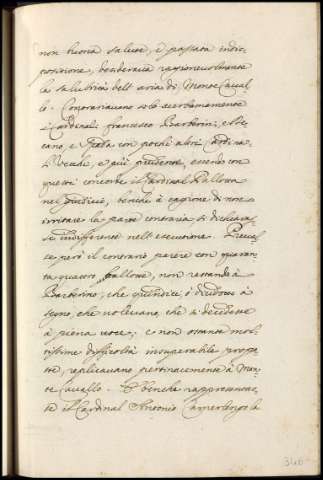 non buona salute, e passata indis-
posizione, desiderava ragionevolmente
la salubrità dell'aria di Monte Caval
lo. Contrariavano solo acerbamente
i Cardinali Francesco Barberin, e
cano, e Spada con pochi altri Cardina
li Vecchi, e più prudenti, essendo con
questi concorde il Cardinal Pallotta
nel giudicio, benche à cagione di non
irritare la parte contraria si dichiara
se indifferente nell'esecutione. Preval
se però il contrario parere con quaran
ta quattro pallotte, non restando à
Barberino, che quindici, ò dicidotto à
segno, che volevano, che si decidesse
à piena voce; e non ostante mol
tissime difficoltà insuperabile propo
ste, replicavano pertinacemente à Mon
te Cavallo. E benche rappresentas
se il Cardinal Antonio Camerlengo la
340